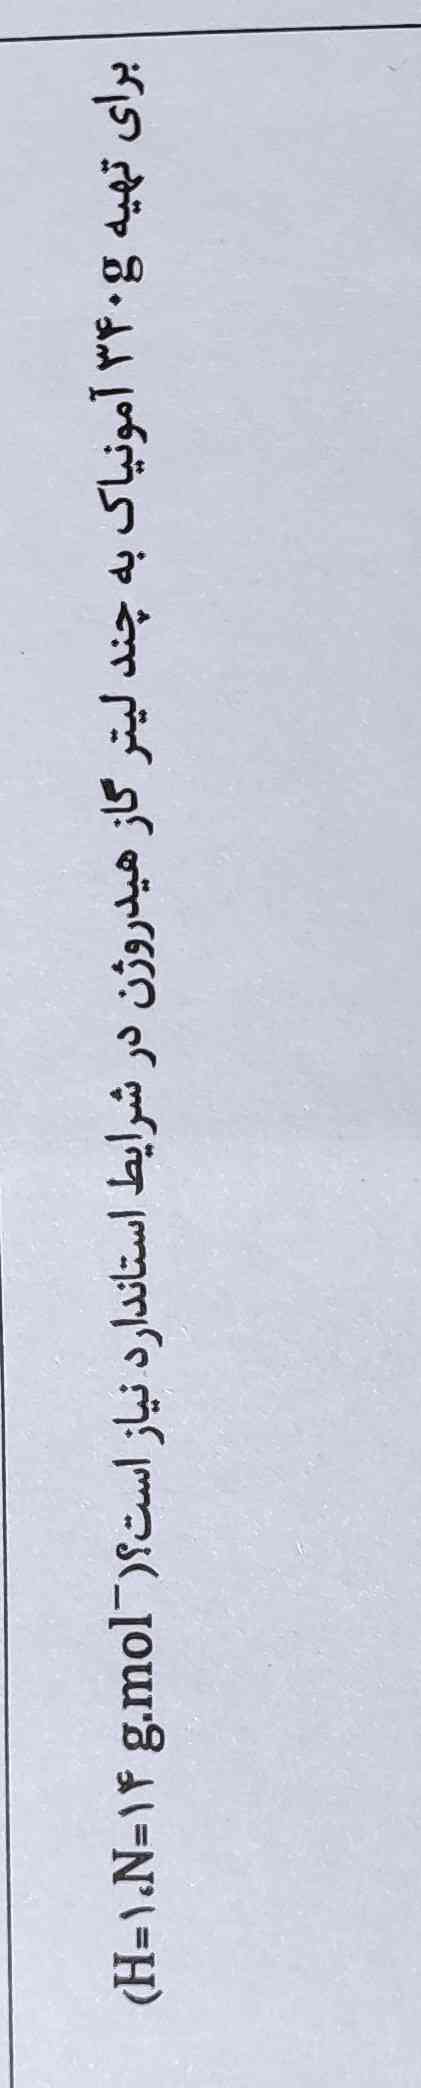 برای تهیه ۳۴۰g آمونیاک به چند لیتر گاز هیدروژن در شرایط استاندارد نیاز است؟(H=۱،N=۱۴ g.mol⁻)